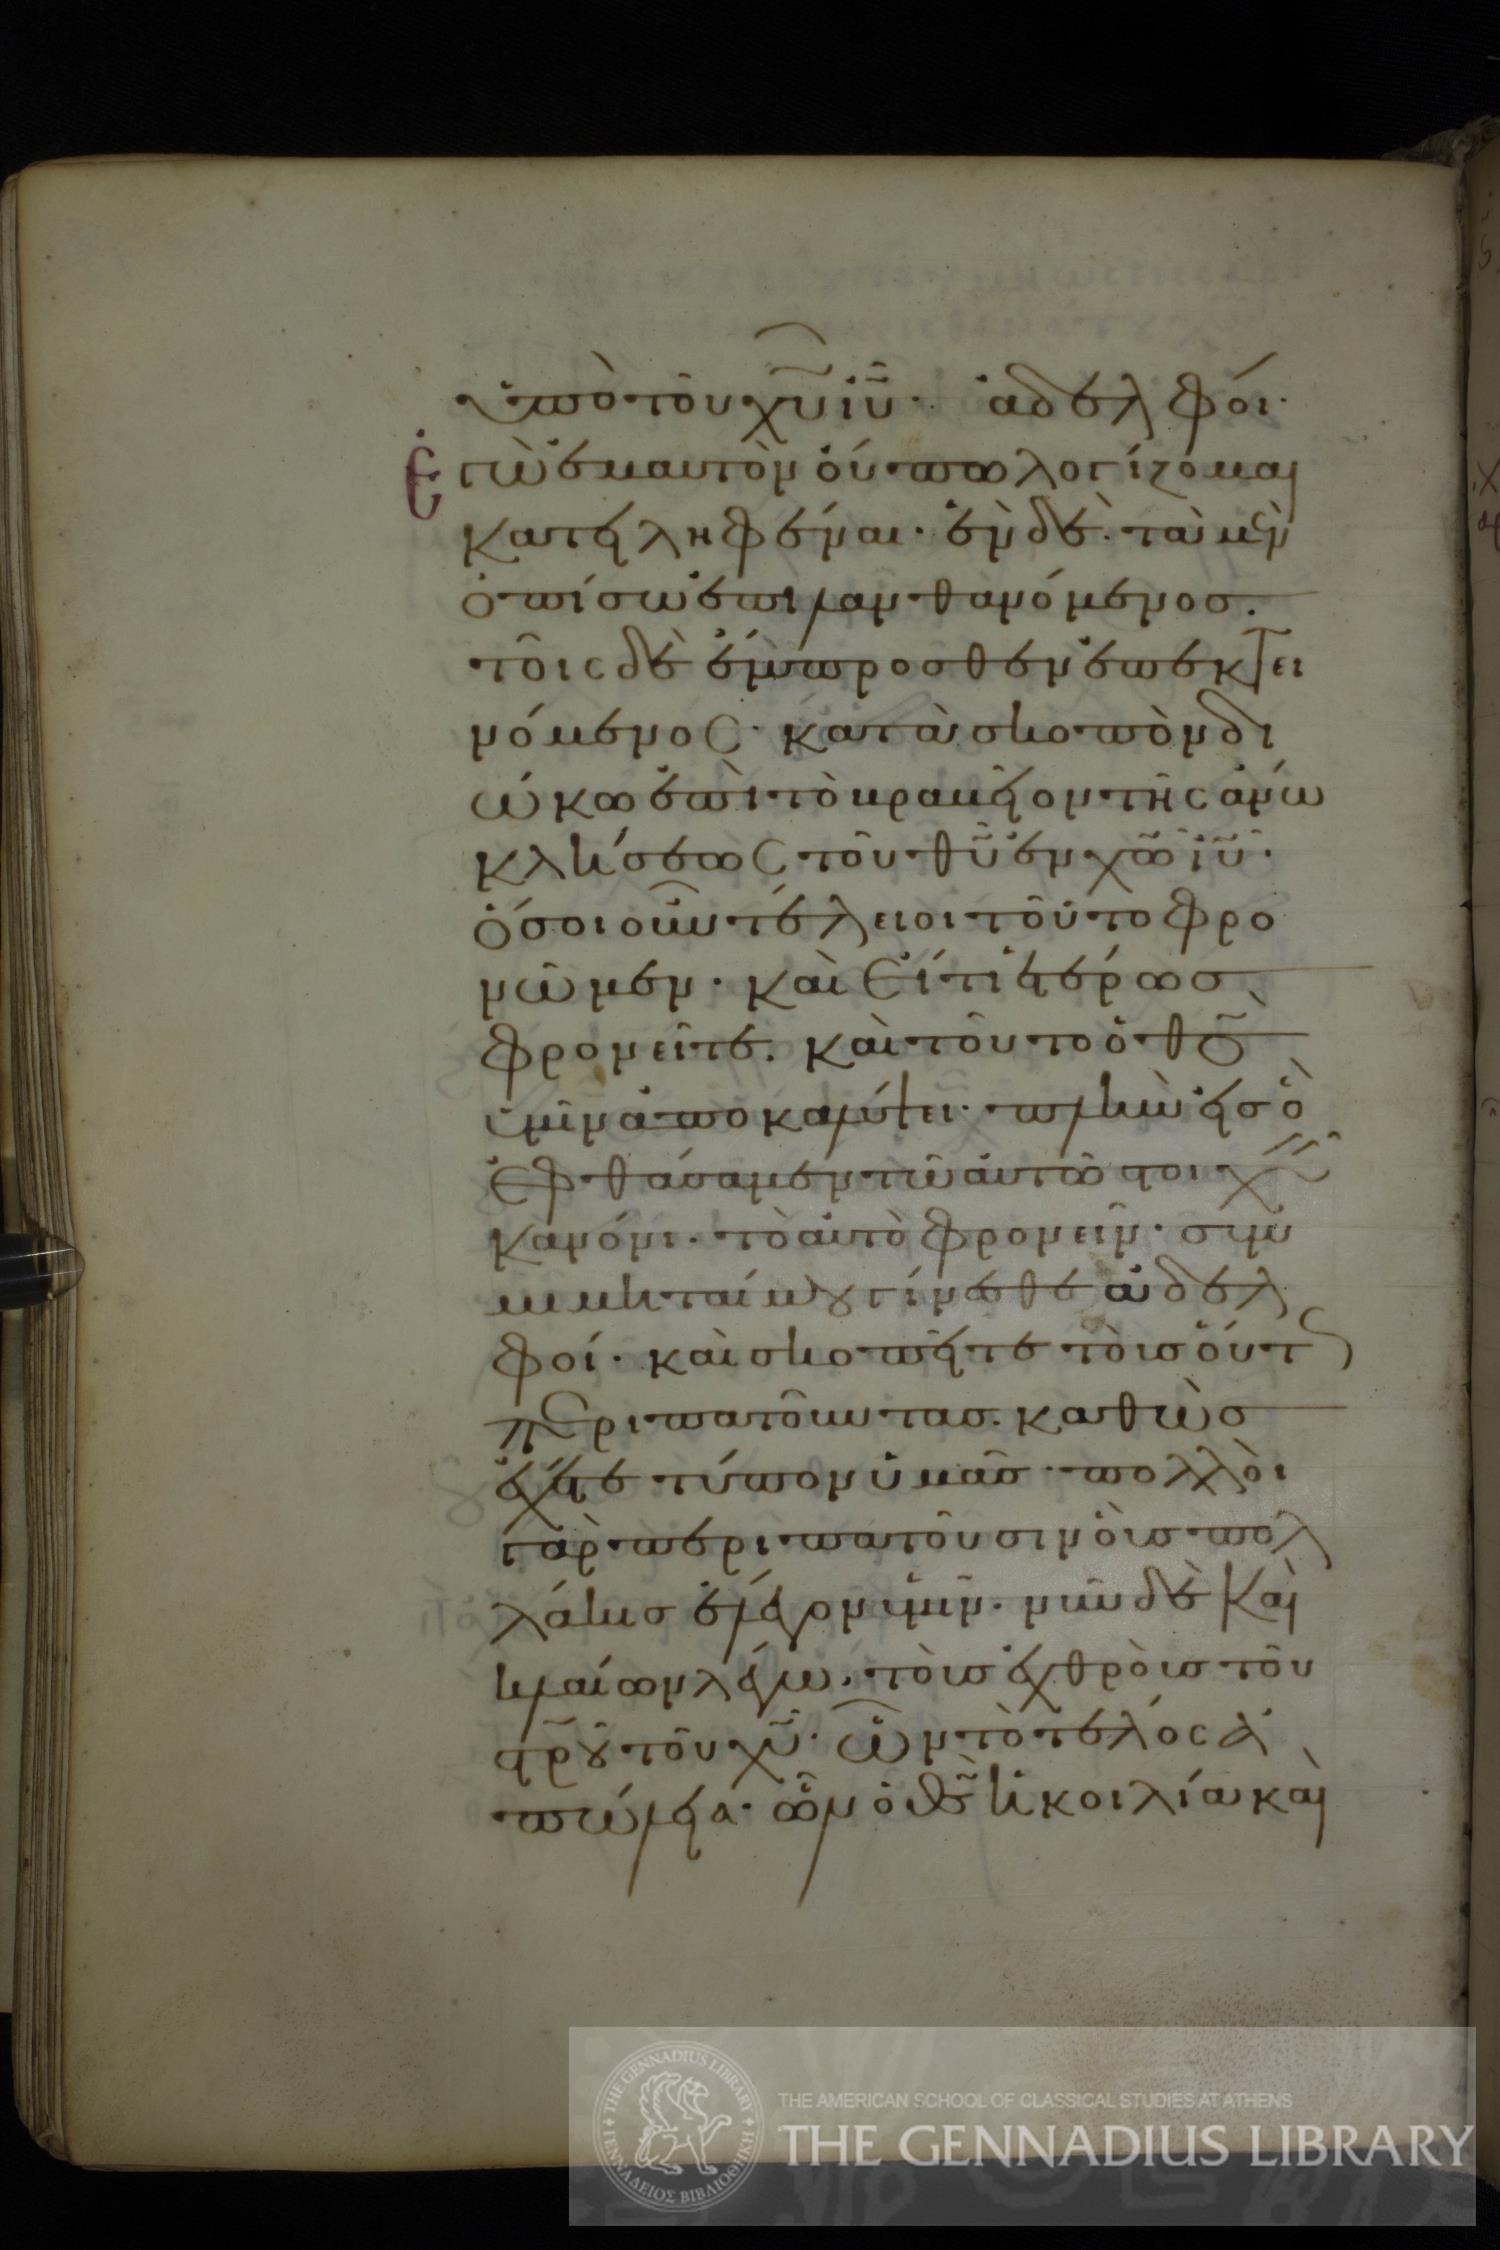 ὑπὸ τοῦ χυ ιυ· ἀδελφοί·
Ἐγὼ ἐμαυτὸν οὔπω λογίζομαι
κατειληφέναι· ἓν δὲ· τὰ μὲν
ὀπίσω ἐπιλανθανόμενος·
τοῖς δὲ ἔμπροσθεν ἐπεκτει
νόμενος· κατὰ σκοπὸν δι
ώκω ἐπὶ τὸ βραβεῖον τῆς ἄνω
κλήσεως τοῦ θυ ἐν χω ιυ·
ὅσοι οὖν τέλειοι τοῦτο φρο
νῶμεν· καὶ εἴ τι ἑτέρως
φρονεῖτε· καὶ τοῦτο ὁ θς
ὑμῖν ἀποκαλύψει· πλὴν εἰς ὃ
ἐφθάσαμεν τῶ αὐτῶ στοιχεῖν
κανόνι· τὸ αὐτὸ φρονεῖν· συμ
μιμηταί μου γίνεσθε ἀδελ
φοί· καὶ σκοπεῖτε τοὺς οὕτω
περιπατοῦντας· καθὼς
ἔχετε τύπον ὑμᾶς· πολλοὶ
γὰρ περιπατοῦσιν οὓς πολ
λάκις ἔλεγον ὑμῖν· νῦν δὲ καὶ
κλαίων λέγω· τοὺς ἐχθροὺς τοῦ
στρου τοῦ χυ· ὧν τὸ τέλος ἀ
πώλεια· ὧν ὁ θς ἡ κοιλία καὶ
THE GENNADIUS LIBRARY
ΓΕΝΝΑΔΕΙΟΣ ΒΙΒΛΙΟΘΗΚΗ
THE AMERICAN SCHOOL OF CLASSICAL STUDIES AT ATHENS
THE GENNADIUS LIBRARY